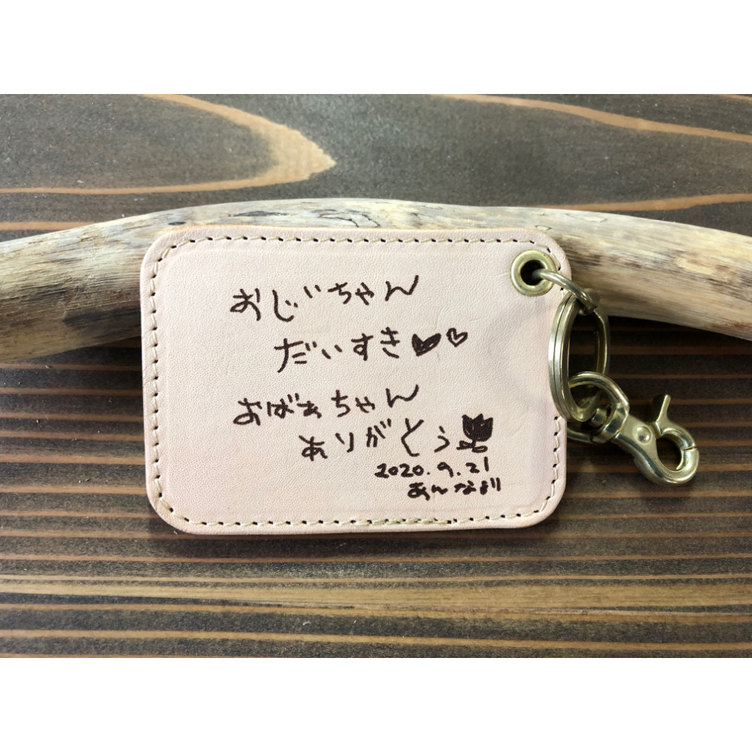 おじいちゃん
だいすき♥♡
おばあちゃん
ありがとう
2020.9.21
あんなより